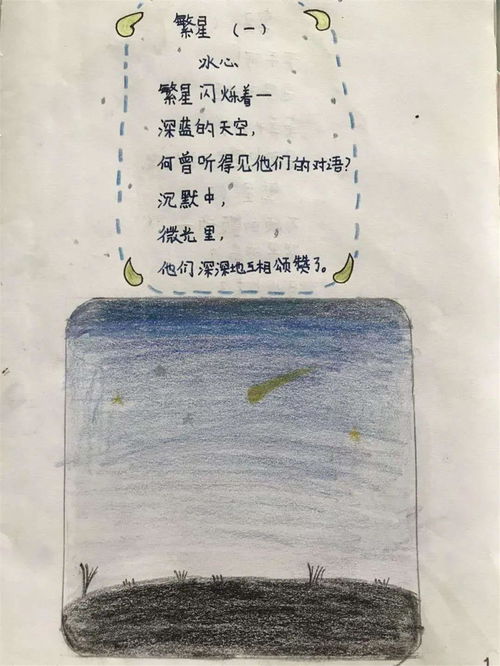 繁星（一）
冰心
繁星闪烁着一
深蓝的天空，
何曾听得见他们的对语？
沉默中，
微光里，
他们深深地互相颂赞了。